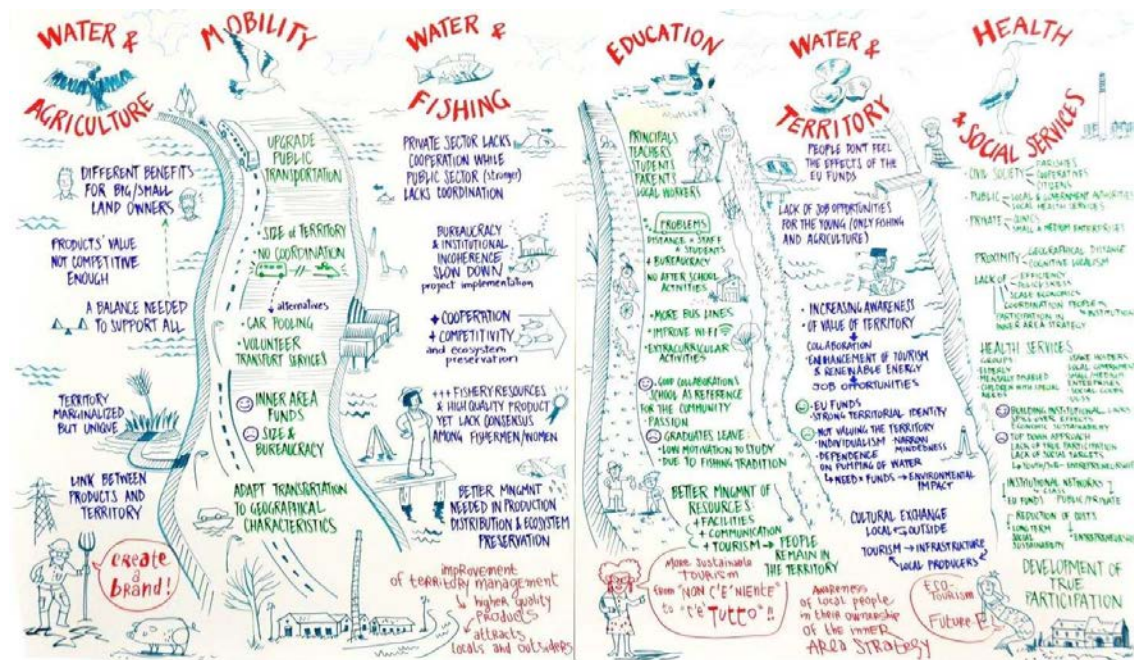 WATER &
AGRICULTURE
DIFFERENT BENEFITS
FOR BIG/SMALL
LAND OWNERS
PRODUCTS' VALUE
NOT COMPETITIVE
ENOUGH
A BALANCE NEEDED
TO SUPPORT ALL
TERRITORY
MARGINALIZED
BUT UNIQUE
LINK BETWEEN
PRODUCTS AND
TERRITORY
CREATE
a
brand!
MOBILITY
UPGRADE
PUBLIC
TRANSPORTATION
SIZE of TERRITORY
NO COORDINATION
alternatives
• CAR POOLING
• VOLUNTEER
TRANSPORT SERVICES
INNER AREA
FUNDS
SIZE &
BUREAUCRACY
ADAPT TRANSPORTATION
TO GEOGRAPHICAL
CHARACTERISTICS
WATER &
FISHING
PRIVATE SECTOR LACKS
COOPERATION WHILE
PUBLIC SECTOR (stronger)
LACKS COORDINATION
BUREAUCRACY
& INSTITUTIONAL
INCOHERENCE
SLOW DOWN
project implementation
+ COOPERATION
+ COMPETITIVITY
and ecosystem
preservation
+++ FISHERY RESOURCES
& HIGH QUALITY PRODUCT
YET LACK CONSENSUS
AMONG FISHERMEN/WOMEN
BETTER MNGMNT
NEEDED IN PRODUCTION
DISTRIBUTION & ECOSYSTEM
PRESERVATION
improvement
of territory management
↳ higher quality
products
attracts
locals and outsiders
EDUCATION
PRINCIPALS
TEACHERS
STUDENTS
PARENTS
LOCAL WORKERS
PROBLEMS
DISTANCE x STAFF
& STUDENTS
+ BUREAUCRACY
NO AFTER SCHOOL
ACTIVITIES
• MORE BUS LINES
• IMPROVE WI-FI
• EXTRACURRICULAR
ACTIVITIES
• GOOD COLLABORATIONS
SCHOOL AS REFERENCE
FOR THE COMMUNITY
• PASSION
GRADUATES LEAVE
• LOW MOTIVATION TO STUDY
• DUE TO FISHING TRADITION
BETTER MNGMNT OF
RESOURCES
+ FACILITIES
+ COMMUNICATION
+ TOURISM → PEOPLE
REMAIN IN
THE TERRITORY
More sustainable
TOURISM
from "NON C'È NIENTE"
to "C'È TUTTO"!!
WATER &
TERRITORY
PEOPLE DON'T FEEL
THE EFFECTS OF THE
EU FUNDS
LACK OF JOB OPPORTUNITIES
FOR THE YOUNG (ONLY FISHING
AND AGRICULTURE)
• INCREASING AWARENESS
• OF VALUE OF TERRITORY
COLLABORATION
• ENHANCEMENT OF TOURISM
& RENEWABLE ENERGY
JOB OPPORTUNITIES
• EU FUNDS
• STRONG TERRITORIAL IDENTITY
• NOT VALUING THE TERRITORY
• INDIVIDUALISM - NARROW
MINDEDNESS
• DEPENDENCE
ON PUMPING OF WATER
↳ NEED x FUNDS → ENVIRONMENTAL
IMPACT
CULTURAL EXCHANGE
LOCAL OUTSIDE
TOURISM → INFRASTRUCTURE
LOCAL PRODUCERS
AWARENESS
of local people
in their ownership
of the inner
AREA STRATEGY
ECO-
TOURISM
HEALTH
& SOCIAL SERVICES
• CIVIL SOCIETY
PARISHES
COOPERATIVES
CITIZENS
• PUBLIC
LOCAL & GOVERNMENT AUTHORITIES
LOCAL HEALTH SERVICES
• PRIVATE
CLINICS
SMALL & MEDIUM ENTERPRISES
PROXIMITY
GEOGRAPHICAL DISTANCE
COGNITIVE LOCALISM
LACK OF
EFFICIENCY
SCALE ECONOMICS
COORDINATION PEOPLE
INSTITUTION
PARTICIPATION IN
INNER AREA STRATEGY
HEALTH SERVICES
GROUPS
ELDERLY
MENTALLY DISABLED
CHILDREN WITH SPECIAL
NEEDS
STAKE HOLDERS
LOCAL GOVERNMENT
SMALL/MEDIUM
ENTERPRISES
SOCIAL COOPS
BUILDING INSTITUTIONAL LINKS
SPILL OVER EFFECTS
ECONOMIC SUSTAINABILITY
TOP DOWN APPROACH
LACK OF TRUE PARTICIPATION
LACK OF SOCIAL TARGETS
INSTITUTIONAL NETWORKS
EU FUNDS
PUBLIC/PRIVATE
REDUCTION OF COSTS
LONG TERM
SOCIAL
SUSTAINABILITY
DEVELOPMENT OF
TRUE
PARTICIPATION